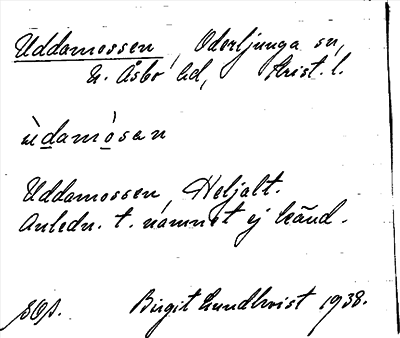 Uddamossen, Oderljunga sn,
N. Åsbo hd, Krist. l.
ùdamòsen
Uddamossen, Heljalt.
Anledn. t. namnet ej känd.
Birgit Lundkvist 1938.